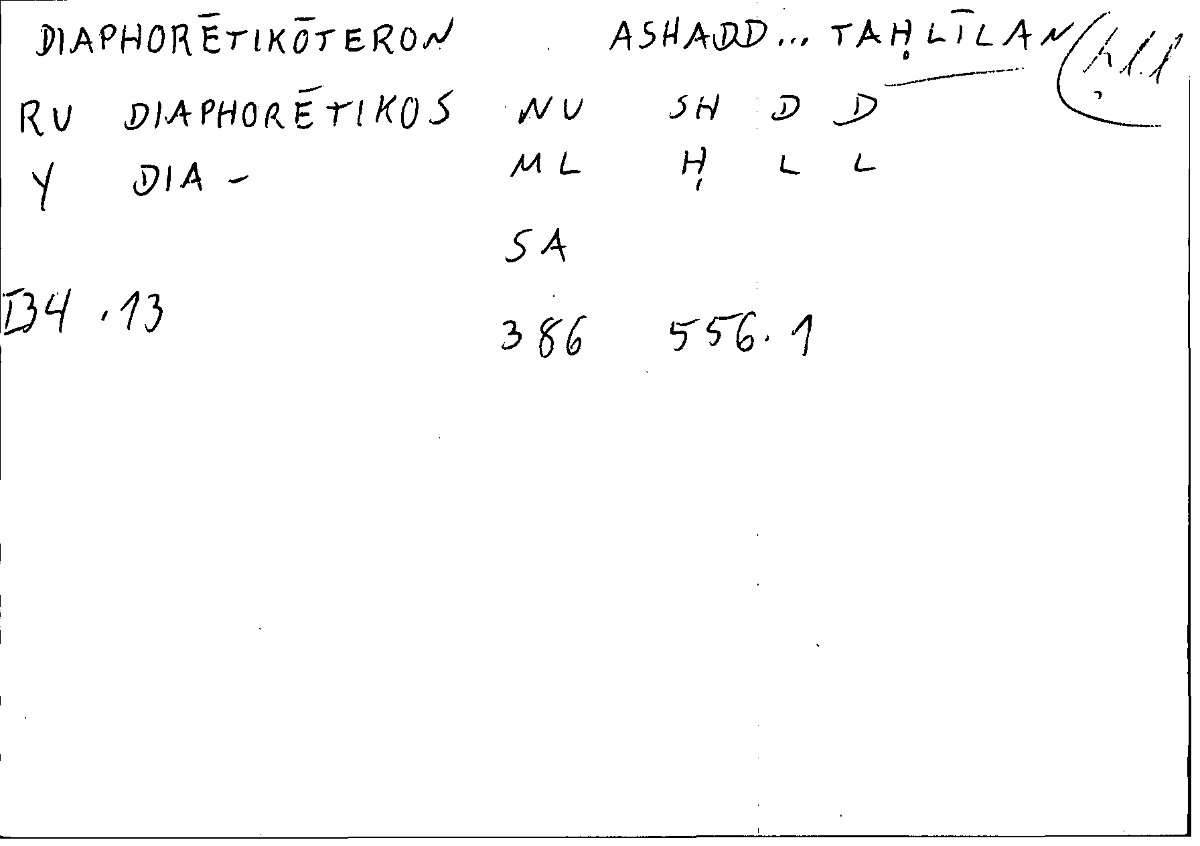 DIAPHORĒTIKŌTERON ASHADD... TAḤLĪLAN (ḥ.l.l
RU DIAPHORĒTIKOS NU SH D D
Y DIA- ML Ḥ L L
SA
I34.13 386 556.1